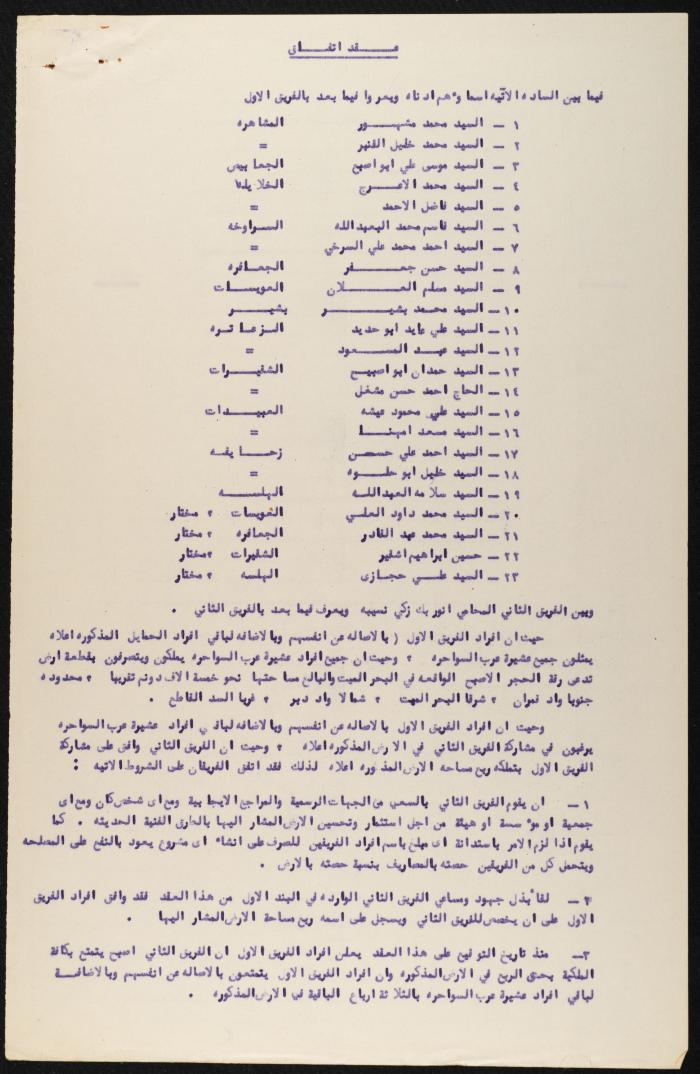 عـــقد اتفــاق
فيما بين الساده الآتيه اسماؤهم ادناه ويعرفوا فيما بعد بالفريق الاول
١ ــ السيد محمد مشهـــــور المشاهره
٢ ــ السيد محمد خليل القنبر =
٣ ــ السيد موسى علي ابو اصبح الجعابيص
٤ ــ السيد محمد الاعـــرج الخلايله
٥ ــ السيد فاضل الاحمد =
٦ ــ السيد قاسم محمد العبدالله الســراوخه
٧ ــ السيد احمد محمد علي السرخي =
٨ ــ السيد حسن جعـــــفر الجعـافره
٩ ــ السيد مسلم العـــــلان العويســـات
١٠ ــ السيد محمــد بشيــــــر بشيـــر
١١ ــ السيد علي عايد ابو حديد الــزعاتــره
١٢ ــ السيد عبــد المـــــعود =
١٣ ــ السيد حمدان ابو اصبيــح الشقيـــرات
١٤ ــ الحاج احمد حسن مشعل =
١٥ ــ السيد علي محمود عيشه العبيــدات
١٦ ــ السيد سعد امهنــا =
١٧ ــ السيد احمد علي حســـن زحــايقــه
١٨ ــ السيد خليل ابو حلــوه =
١٩ ــ السيد سلامه العبداللــه الهلســـه
٢٠ ــ السيد محمد داود العلــي العويسات ، مختار
٢١ ــ السيد محمد عبد القادر الجعافره ، مختار
٢٢ ــ حسين ابراهيم اشقير الشقيرات ، مختار
٢٣ ــ السيد علــي حجازى الهلسه ، مختار
وبين الفريق الثاني المحامي انور بك زكي نسيبه ويعرف فيما بعد بالفريق الثاني .
حيث ان افراد الفريق الاول ( بالاصاله عن انفسهم وبالاضافه لباقي افراد الحمايل المذكوره اعلاه
يمثلون جميع عشيرة عرب السواحره ، وحيث ان جميع افراد عشيرة عرب السواحره يملكون ويتصرفون بقطعة ارض
تدعى رقة الحجر الاصبح الواقعه في البحر الميت والبالغ مساحتها نحو خمسة الاف دونم تقريبا ، محدوده
جنوبا واد قمران ، شرقا البحر الميت ، شمالا واد دبر ، غربا السد القاطع .
وحيث ان افراد الفريق الاول بالاصاله عن انفسهم وبالاضافه لباقي افراد عشيرة عرب السواحره
يرغبون في مشاركة الفريق الثاني في الارض المذكوره اعلاه ، وحيث ان الفريق الثاني وافق على مشاركة
الفريق الاول بتملكه ربع مساحه الارض المذكوره اعلاه لذلك فقد اتفق الفريقان على الشروط الاتيه :
١ ــ ان يقوم الفريق الثاني بالسعي من الجهات الرسمية والمراجع الايجابية ومع اى شخص كان ومع اى
جمعية او مؤسسة او هيئة من اجل استثمار وتحسين الارض المشار اليها بالطرق الفنية الحديثه . كما
يقوم اذا لزم الامر باستدانة اى مبلغ باسم افراد الفريقين للصرف على انشاء اى مشروع يعود بالنفع على المصلحه
ويتحمل كل من الفريقين حصته بالمصاريف بنسبة حصته بالارض .
٢ ــ لقاء بذل جهود ومساعي الفريق الثاني الوارده في البند الاول من هذا العقد فقد وافق افراد الفريق
الاول على ان يخصص للفريق الثاني ويسجل على اسمه ربع مساحة الارض المشار اليها .
٣ــ منذ تاريخ التوقيع على هذا العقد يعلن افراد الفريق الاول ان الفريق الثاني اصبح يتمتع بكافة
الملكية بحق الربع في الارض المذكوره وان افراد الفريق الاول يتمتعون بالاصاله عن انفسهم وبالاضافــة
لباقي افراد عشيرة عرب السواحره بالثلاثة ارباع الباقية في الارض المذكوره .